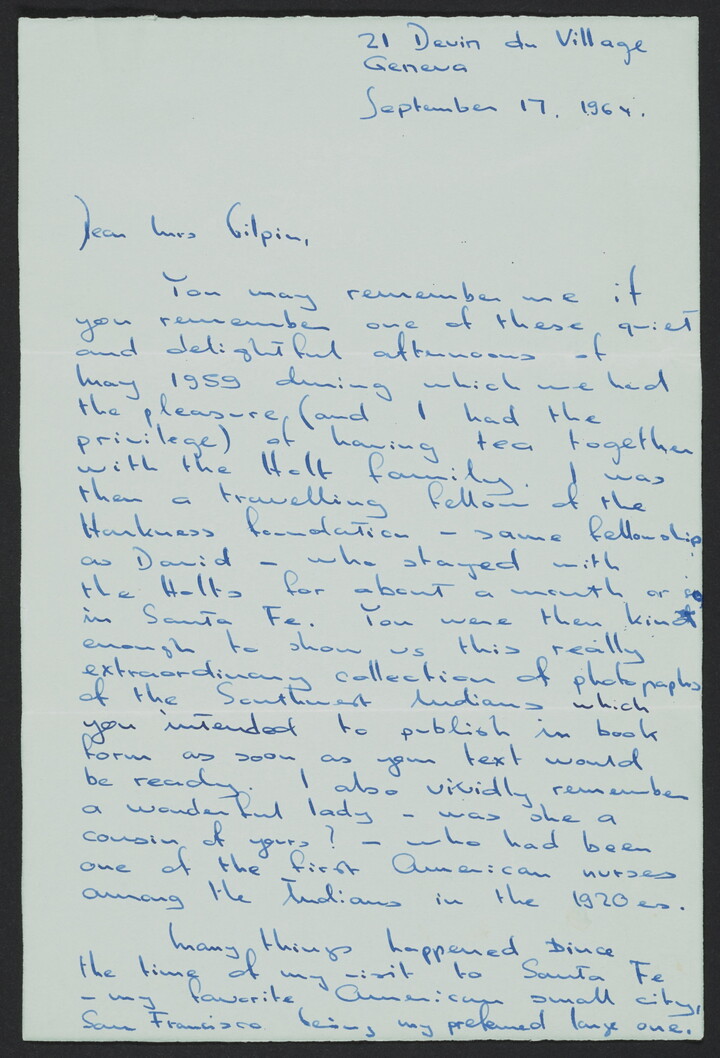 21 Devin du Village
Geneva
September 17. 1964.
Dear Mrs Gilpin,
You may remember me if
you remember one of these quiet
and delightful afternoons of
May 1959 during which we had
the pleasure (and I had the
privilege) of having tea together
with the Holt family. I was
then a travelling fellow of the
Harkness foundation - same fellowship
as David - who stayed with
the Holts for about a month or so
in Santa Fe. You were then kind
enough to show us this really
extraordinary collection of photographs
of the Southwest Indians which
you intended to publish in book
form as soon as your text would
be ready. I also vividly remember
a wonderful lady - was she a
cousin of yours? - who had been
one of the first American nurses
among the Indians in the 1920es.
Many things happened since
the time of my visit to Santa Fe
- my favorite American small city,
San Francisco being my preferred large one.